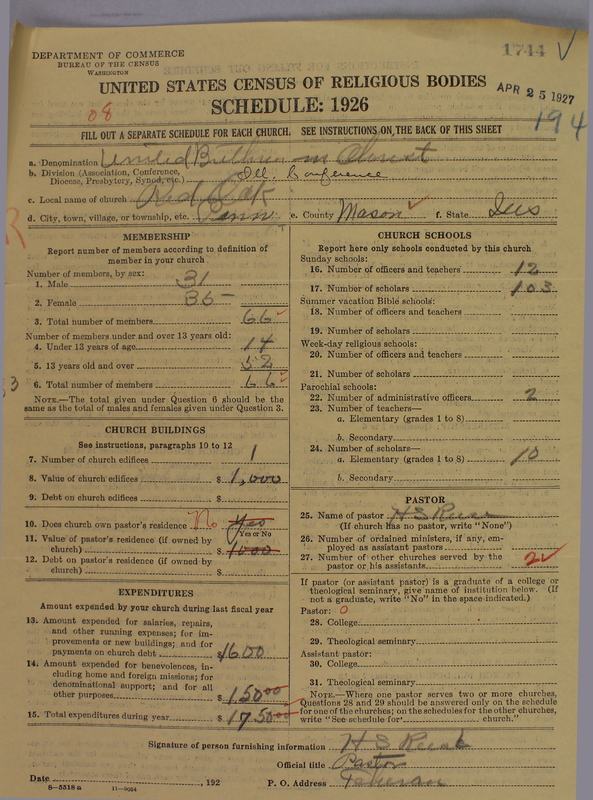 1744
DEPARTMENT OF COMMERCE
BUREAU OF THE CENSUS
WASHINGTON
UNITED STATES CENSUS OF RELIGIOUS BODIES
APR 25 1927
SCHEDULE: 1926
08
194
FILL OUT A SEPARATE SCHEDULE FOR EACH CHURCH. SEE INSTRUCTIONS ON THE BACK OF THIS SHEET
a. Denomination United Brethren in Christ
b. Division (Association, Conference, Diocese, Presbytery, Synod, etc.) Ill. Conference
c. Local name of church Red Oak
d. City, town, village, or township, etc. Penn e. County Mason f. State
MEMBERSHIP
Report number of members according to definition of
member in your church
Number of members, by sex:
1. Male 31
2. Female 35
3. Total number of members 66
Number of members under and over 13 years old:
4. Under 13 years of age 14
5. 13 years old and over 52
6. Total number of members 66
NOTE.—The total given under Question 6 should be
same as the total of males and females given under Question 3.
CHURCH BUILDINGS
See instructions, paragraphs 10 to 12
7. Number of church edifices 1
8. Value of church edifices $ 1,000
9. Debt on church edifices $
10. Does church own pastor's residence No Yes
Yes or No
11. Value of pastor's residence (if owned by
church) $ 1000
12. Debt on pastor's residence (if owned by
church) $
EXPENDITURES
Amount expended by your church during last fiscal year
13. Amount expended for salaries, repairs,
and other running expenses; for im-
provements or new buildings; and for
payments on church debt $1600
14. Amount expended for benevolences, in-
cluding home and foreign missions; for
denominational support; and for all
other purposes $ 150.00
15. Total expenditures during year $ 1750.00
CHURCH SCHOOLS
Report here only schools conducted by this church
Sunday schools:
16. Number of officers and teachers 12
17. Number of scholars 103
Summer vacation Bible schools:
18. Number of officers and teachers
19. Number of scholars
Week-day religious schools:
20. Number of officers and teachers
21. Number of scholars
Parochial schools:
22. Number of administrative officers 2
23. Number of teachers—
a. Elementary (grades 1 to 8)
b. Secondary
24. Number of scholars—
a. Elementary (grades 1 to 8) 10
b. Secondary
PASTOR
25. Name of pastor H S
(If church has no pastor, write "None")
26. Number of ordained ministers, if any, em-
ployed as assistant pastors
27. Number of other churches served by the
pastor or his assistants 2
If pastor (or assistant pastor) is a graduate of a college or
theological seminary, give name of institution below. (If
not a graduate, write "No" in the space indicated.)
Pastor: 0
28. College
29. Theological seminary
Assistant pastor:
30. College
31. Theological seminary
NOTE.—Where one pastor serves two or more churches,
Questions 28 and 29 should be answered only on the schedule
for one of the churches; on the schedules for the other churches,
write "See schedule for church."
Signature of person furnishing information H S
Official title Pastor
Date , 192 P. O. Address
8—5518 a 11—9054